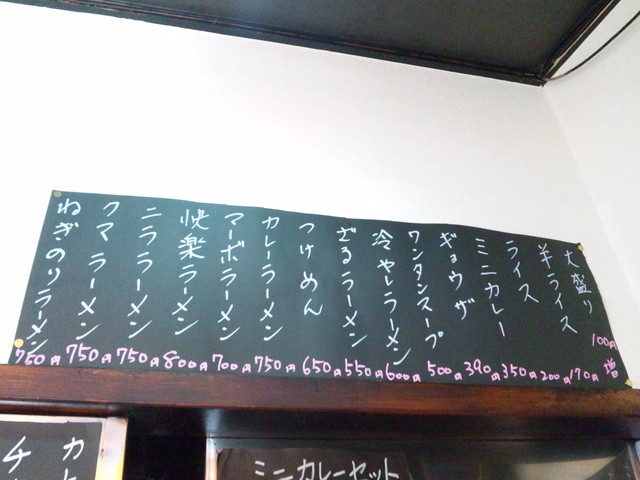 大盛り 100円増
半ライス 170円
ライス 200円
ミニカレー 350円
ギョウザ 390円
ワンタンスープ 500円
冷やしラーメン 600円
ざるラーメン 550円
つけめん 650円
カレーラーメン 750円
マーボラーメン 700円
快楽ラーメン 800円
ニララーメン 750円
クマラーメン 750円
ねぎのりラーメン 750円
ミニカレーセット